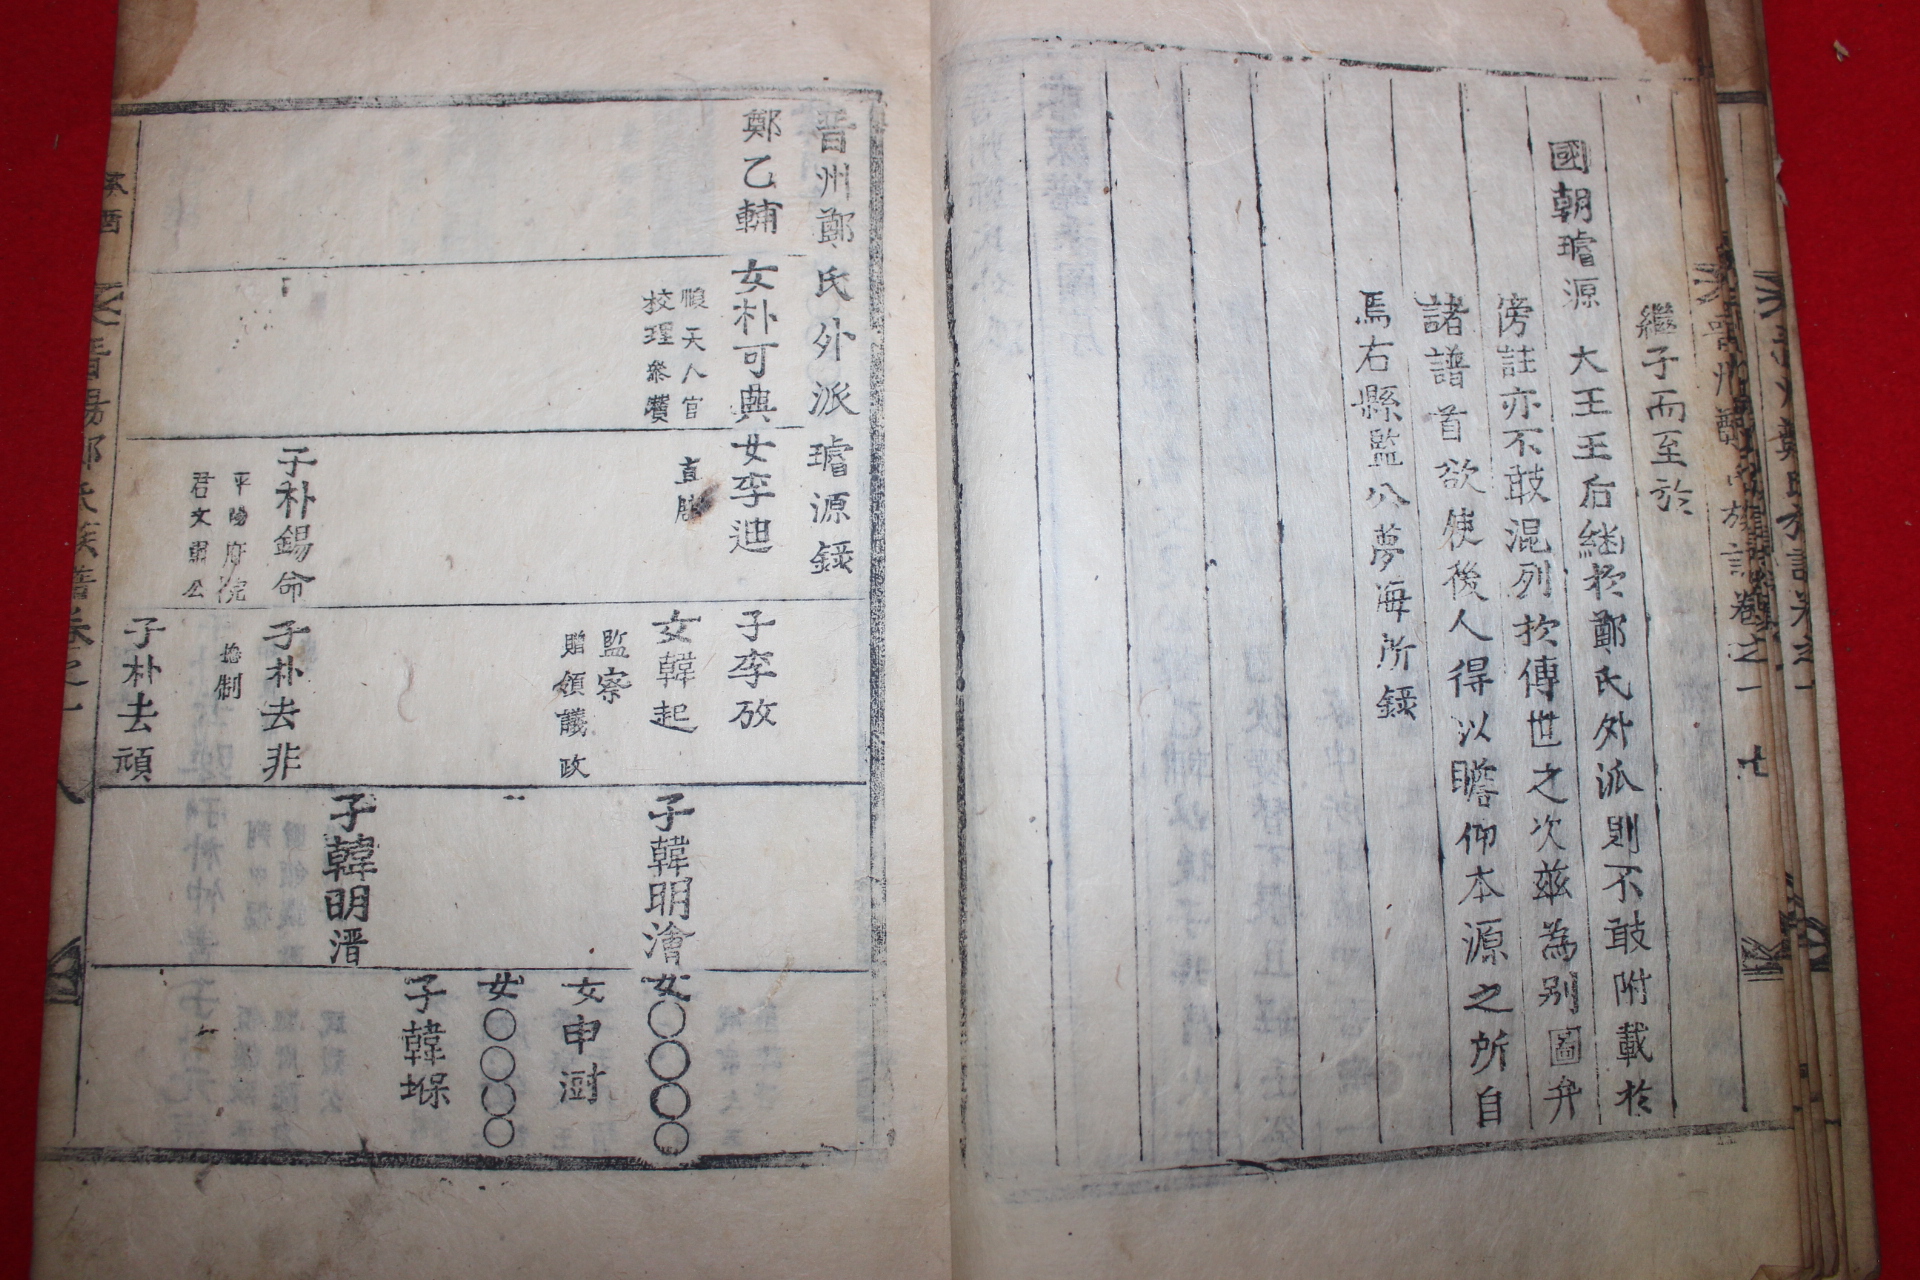 繼子而至於
國朝璿源　大王王后継於鄭氏外派則不敢附載於
傍註亦不敢混列於傳世之次玆為别圖弁
諸譜首欲使後人得以瞻仰本源之所自
焉右縣監公夢海所録
晋州鄭氏外派璿源録
鄭乙輔
女朴可興
天人官
校理叅贊
女李迪
直
子朴錫命
平陽府院
君文肅公
子李孜
女韓起
監察
贈領議政
子朴去非
捴制
子朴去頑
子韓明澮
子韓明溍
女〇〇〇〇
女申澍
女〇〇〇〇
子韓堢
晋陽鄭氏族譜卷之一
八